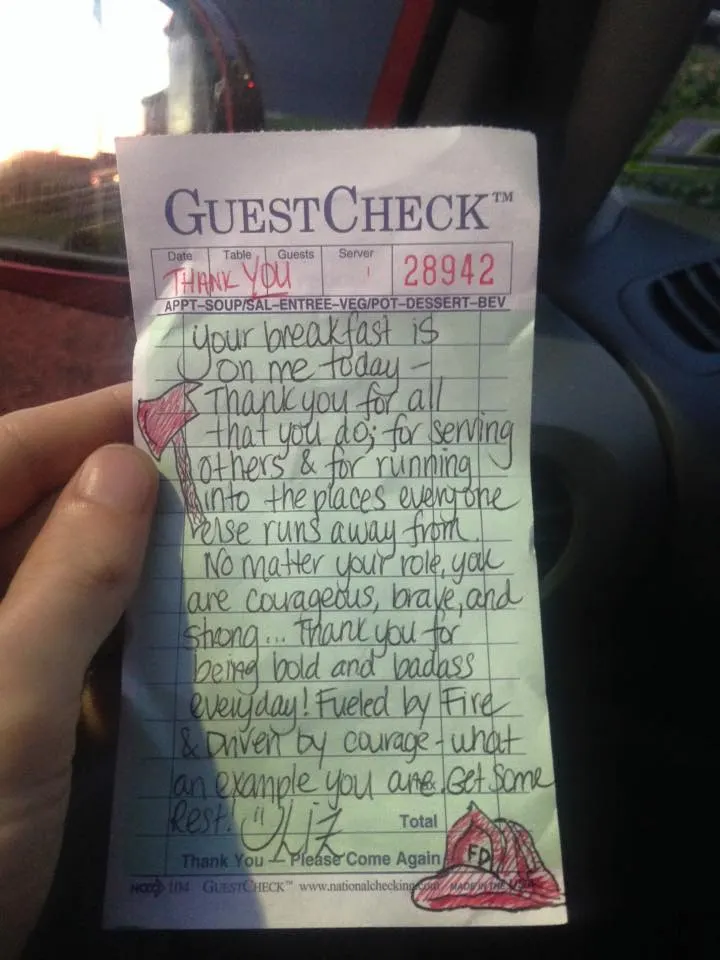 GUESTCHECK™
Date Table Guests Server
THANK YOU 28942
APPT–SOUP/SAL–ENTREE–VEG/POT–DESSERT–BEV
Your breakfast is
on me today –
Thank you for all
that you do; for serving
others & for running
into the places everyone
else runs away from.
No matter your role, you
are courageous, brave, and
strong... Thank you for
being bold and badass
everyday! Fueled by Fire
& Driven by courage - what
an example you are. Get Some
Rest! Liz
Total
Thank You – Please Come Again
FD
104 GUESTCHECK™ www.nationalchecking.com MADE IN THE USA